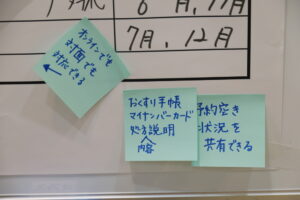 6月、11月
7月、12月
オンラインでも
対面でも
対応できる
←
おくすり手帳
マイナンバーカード
処方説明
内容
予約空き
状況を
共有できる